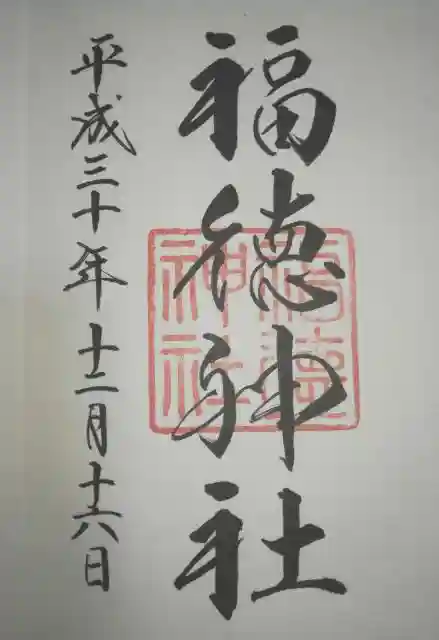 福徳神社
福徳神社
平成三十年十二月十六日